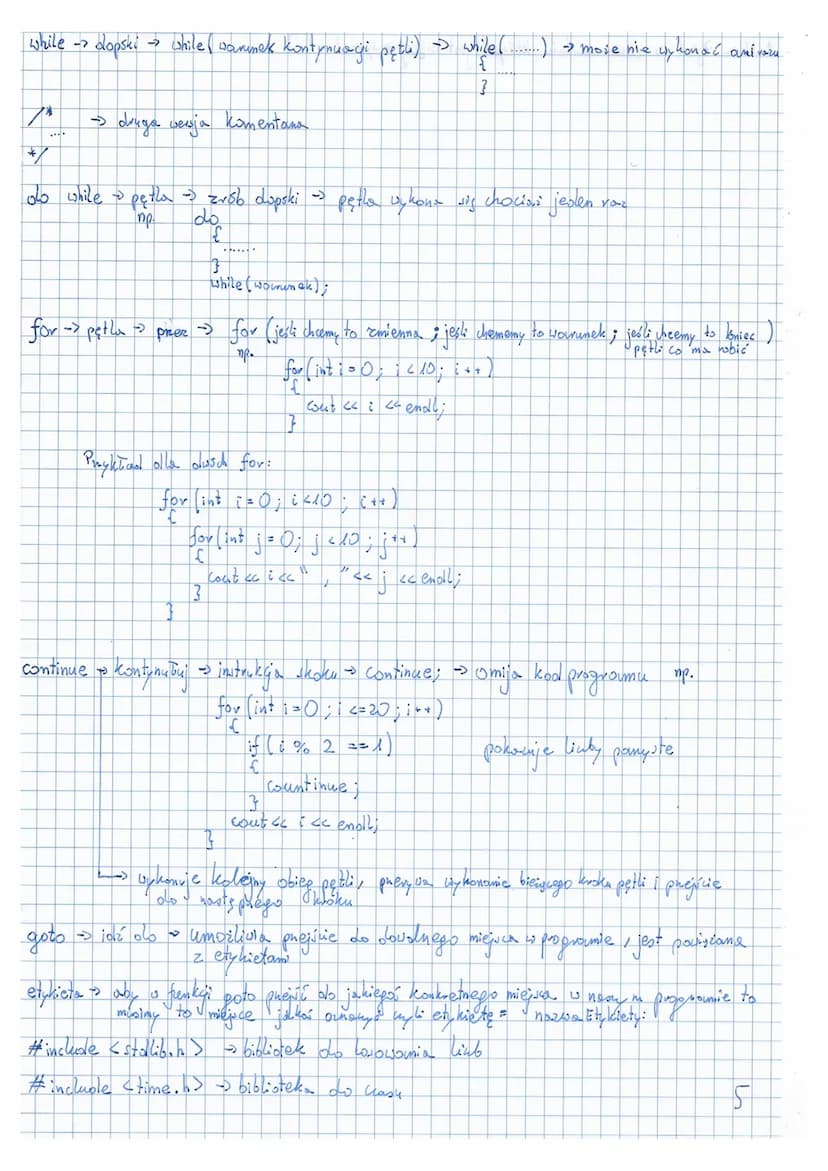 while → dopóki → while( warunek kontynuacji pętli) → while( ....... ) → może nie wykonać ani razu
{
....
}
/*
.... → druga wersja komentarza
*/
do while → pętla → zrób dopóki → pętla wykona się chociaż jeden raz
np. do
{
.......
}
while(warunek);
for → pętla → przez → for (jeśli chcemy to zmienna ; jeśli chcemy to warunek ; jeśli chcemy to koniec )
pętli co ma robić
np.
for(int i=0; i<10; i++)
{
cout << i << endl;
}
Przykład dla dwóch for:
for (int i=0; i<10 ; i++)
{
for(int j=0; j<10 ; j++)
{
cout << i << " , " << j << endl;
}
}
continue → kontynułuj → instrukcja skoku → continue; → omija kod programu np.
for (int i=0 ; i<=20 ; i++)
{
if ( i % 2 == 1) pokazuje liczby parzyste
{
countinue ;
}
cout << i << endl;
}
→ wykonuje kolejny obieg pętli, przerywa wykonanie bieżącego kroku pętli i przejście
do następnego kroku
goto → idź do → umożliwia przejście do dowolnego miejsca w programie, jest powiązana
z etykietami
etykieta → aby w funkcji goto przejść do jakiegoś konkretnego miejsca w naszym programie to
musimy to miejsce jakoś oznaczyć czyli etykietę = nazwaEtykiety:
#include <stdlib.h> → bibliotek do losowania liczb
#include <time.h> → biblioteka do czasu
5